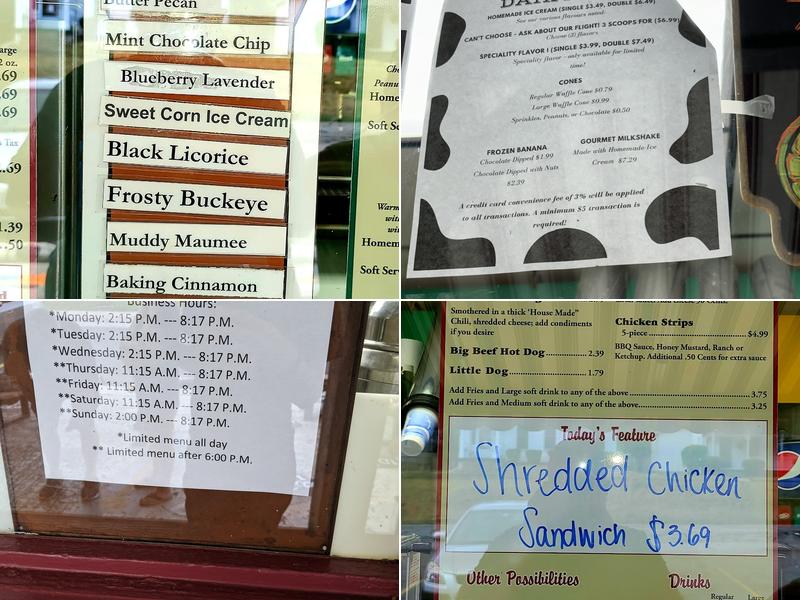 Butter Pecan
Mint Chocolate Chip
Blueberry Lavender
Sweet Corn Ice Cream
Black Licorice
Frosty Buckeye
Muddy Maumee
Baking Cinnamon
2 oz.
.69
.69
.69
.69
1.39
.50
Homem
Soft Se
Warm
Homem
Soft Serv
HOMEMADE ICE CREAM (SINGLE $3.49, DOUBLE $6.49)
See our various flavours noted!
CAN'T CHOOSE - ASK ABOUT OUR FLIGHT! 3 SCOOPS FOR ($6.99)
Choose (3) flavors
SPECIALITY FLAVOR! (SINGLE $3.99, DOUBLE $7.49)
Speciality flavor - only available for limited
time!
CONES
Regular Waffle Cone $0.79
Large Waffle Cone $0.99
Sprinkles, Peanuts, or Chocolate $0.50
FROZEN BANANA
Chocolate Dipped $1.99
Chocolate Dipped with Nuts
$2.39
GOURMET MILKSHAKE
Made with Homemade Ice
Cream $7.29
A credit card convenience fee of 3% will be applied
to all transactions. A minimum $5 transaction is
required!
Business Hours:
*Monday: 2:15 P.M. --- 8:17 P.M.
*Tuesday: 2:15 P.M. --- 8:17 P.M.
*Wednesday: 2:15 P.M. --- 8:17 P.M.
**Thursday: 11:15 A.M. --- 8:17 P.M.
**Friday: 11:15 A.M. --- 8:17 P.M.
**Saturday: 11:15 A.M. --- 8:17 P.M.
**Sunday: 2:00 P.M. --- 8:17 P.M.
*Limited menu all day
** Limited menu after 6:00 P.M.
Smothered in a thick 'House Made"
Chili, shredded cheese; add condiments
if you desire
Big Beef Hot Dog 2.39
Little Dog 1.79
Chicken Strips
5-piece $4.99
BBQ Sauce, Honey Mustard, Ranch or
Ketchup. Additional .50 Cents for extra sauce
Add Fries and Large soft drink to any of the above 3.75
Add Fries and Medium soft drink to any of the above 3.25
Today's Feature
Shredded Chicken
Sandwich $3.69
Other Possibilities
Drinks
Regular Large